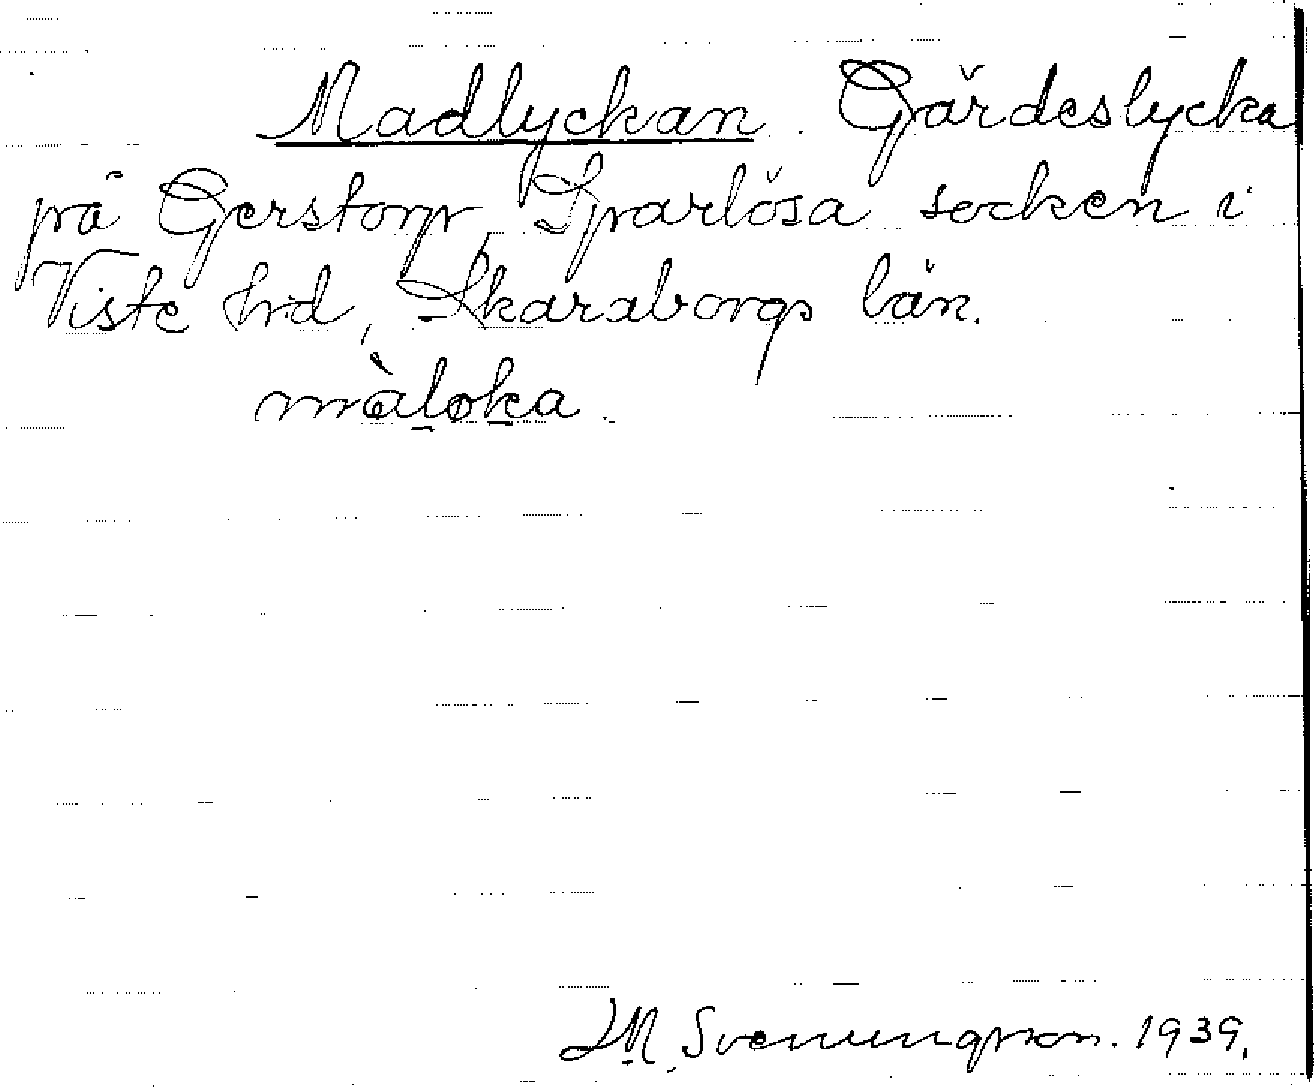 Madlyckan. Gärdeslycka
på Gerstorp, Sparlösa socken i
Viste hd, Skaraborgs län.
màloka.
J.M. Svenungsson. 1939.